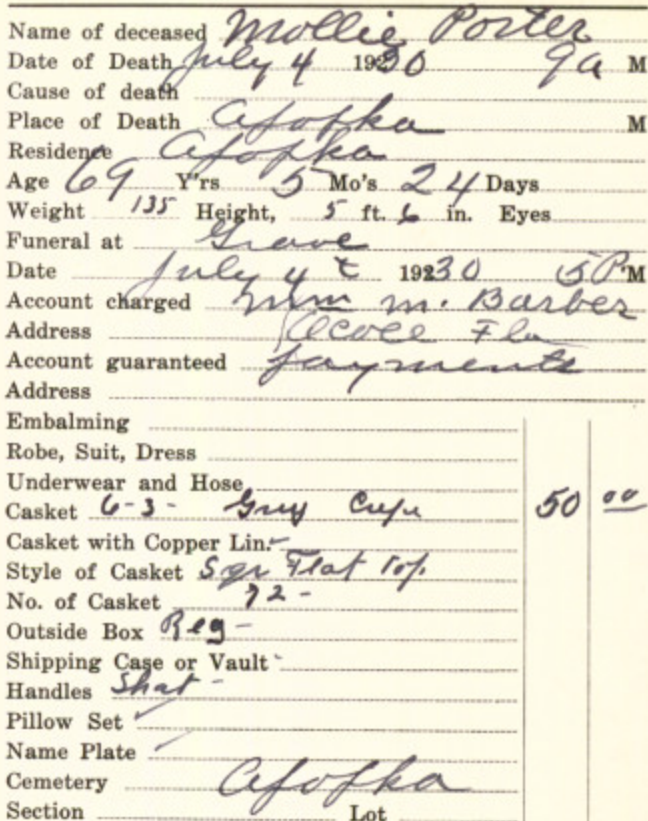 Name of deceased Mollie Porter
Date of Death July 4 1930 9a M
Cause of death
Place of Death Apopka M
Residence Apopka
Age 69 Y'rs 5 Mo's 24 Days
Weight 135 Height, 5 ft. 6 in. Eyes
Funeral at Grave
Date July 4th 1930 5P M
Account charged Wm m. Barber
Address Ocoee Fla
Account guaranteed payments
Address
Embalming
Robe, Suit, Dress
Underwear and Hose
Casket 6-3- Grey Crepe 50 00
Casket with Copper Lin.
Style of Casket Sqr Flat Top
No. of Casket 72-
Outside Box Reg-
Shipping Case or Vault
Handles
Pillow Set
Name Plate
Cemetery Apopka
Section Lot